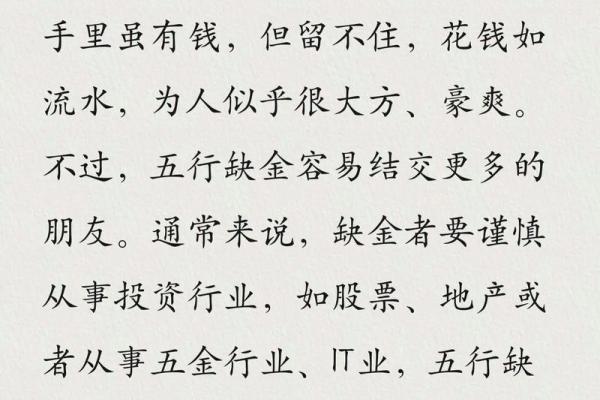 手里虽有钱，但留不住，花钱如
流水，为人似乎很大方、豪爽。
不过，五行缺金容易结交更多的
朋友。通常来说，缺金者要谨慎
从事投资行业，如股票、地产或
者从事五金行业、IT业，五行缺